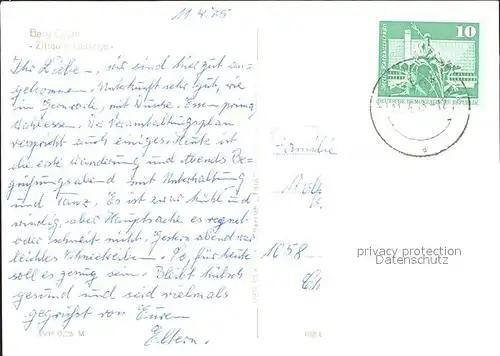 Berg Oybin
- Zittauer Gebirge -
Ihr Lieben, wir sind hier gut an-
gekommen. Unterkunft sehr gut, wie
im Fernverk, mit Dusche. Essen prima
Der Veranstaltungsplan
verspricht auch einiges. Heute ist
die erste Wanderung und abends Be-
grüßungsabend mit Unterhaltung
und Tanz. Es ist zwar kühl und
windig, aber Hauptsache es regnet
oder schneit nicht. Gestern abend war
leichtes Schneetreiben. So, für heute
soll es genug sein. Bleibt hübsch
gesund und seid vielmals
gegrüßt von Euren
Eltern.
10
DEUTSCHE DEMOKRATISCHE REPUBLIK
Familie
1058
Ch
privacy protection
Datenschutz